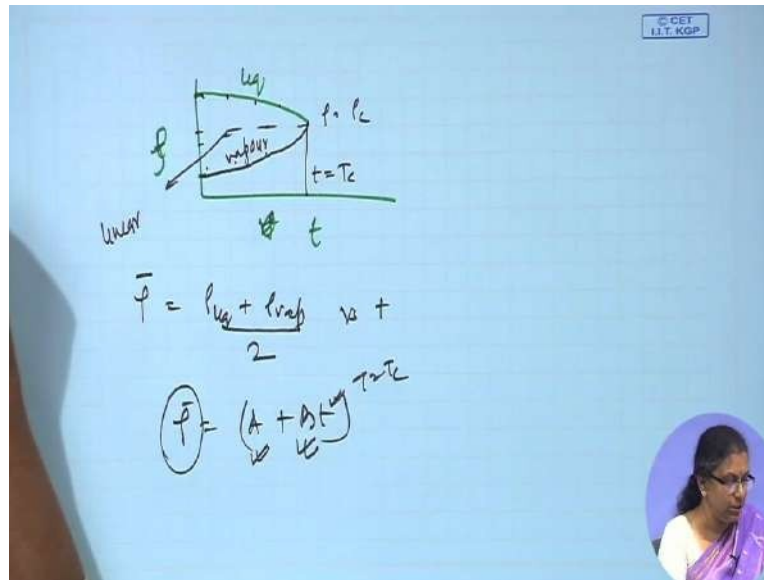 © CET
I.I.T. KGP
liq
ρ = ρc
ρ
vapour
t = Tc
linear
t
ρ̄ = ρliq + ρvap vs t
2
ρ̄ = (A + Bt) T = Tc